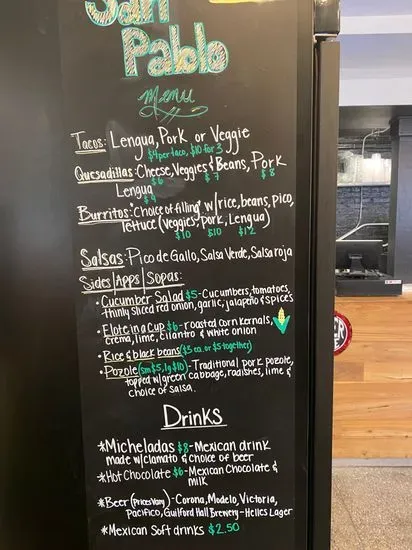 San
Pablo
Menu
Tacos: Lengua, Pork or Veggie
$4 per taco, $10 for 3
Quesadillas: Cheese, Veggies & Beans, Pork
$6 $7 $8
Lengua
$9
Burritos: Choice of filling* w/ rice, beans, pico,
lettuce (Veggies, Pork, Lengua)
$10 $10 $12
Salsas: Pico de Gallo, Salsa Verde, Salsa roja
Sides | Apps | Sopas:
• Cucumber Salad $5 - Cucumbers, tomatoes,
thinly sliced red onion, garlic, jalapeño & spices
• Elote in a Cup $6 - roasted corn kernals,
crema, lime, cilantro & white onion
• Rice & black beans ($3 ea. or $5 together)
• Pozole (sm $5, lg $10) - Traditional pork pozole,
topped w/ green cabbage, radishes, lime &
choice of salsa.
Drinks
*Micheladas $8 - Mexican drink
made w/ clamato & choice of beer
*Hot Chocolate $6 - Mexican Chocolate &
milk
*Beer (Prices Vary) - Corona, Modelo, Victoria,
Pacifico, Guilford Hall Brewery - Helles Lager
*Mexican Soft drinks $2.50